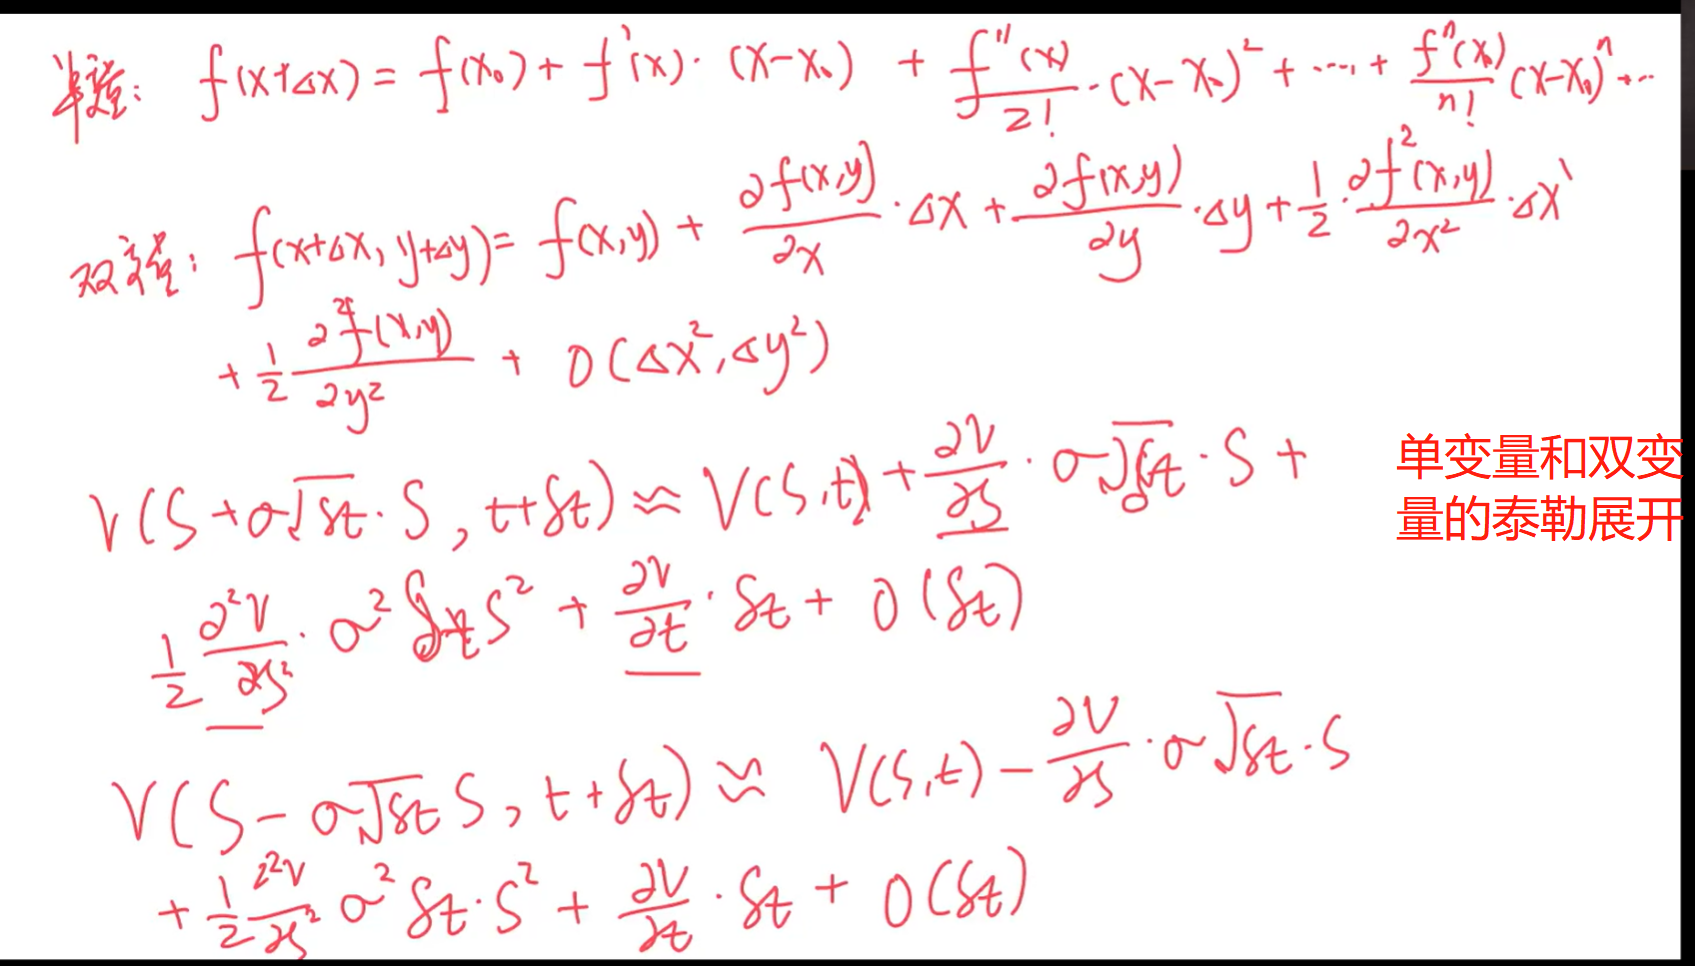 单变量: f(x+Δx) = f(x₀) + f'(x)·(x-x₀) + f''(x)/2!·(x-x₀)² + ···· + fⁿ(x₀)/n! (x-x₀)ⁿ + ···
双变量: f(x+Δx, y+Δy) = f(x,y) + ∂f(x,y)/∂x·Δx + ∂f(x,y)/∂y·Δy + 1/2·∂f²(x,y)/∂x²·Δx
+ 1/2 ∂²f(x,y)/∂y² + O(Δx², Δy²)
V(S+σ√δt·S, t+δt) ≈ V(S,t) + ∂V/∂S·σ√δt·S +
1/2 ∂²V/∂S²·σ²δtS² + ∂V/∂t·δt + O(δt)
V(S-σ√δt S, t+δt) ≈ V(S,t) - ∂V/∂S·σ√δt·S
+ 1/2 ∂²V/∂S² σ²δt·S² + ∂V/∂t·δt + O(δt)
单变量和双变
量的泰勒展开